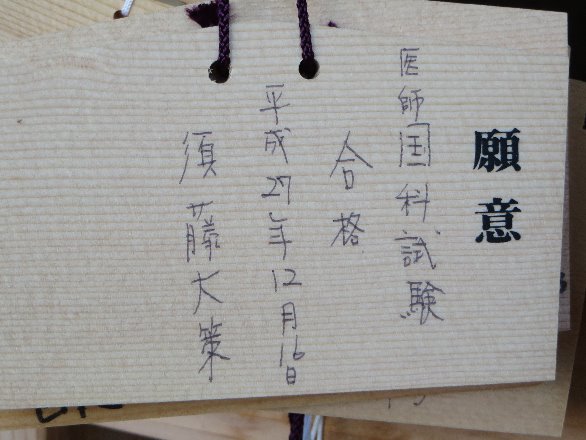 願意
医師国科試験
合格
平成27年12月16日
須藤大策